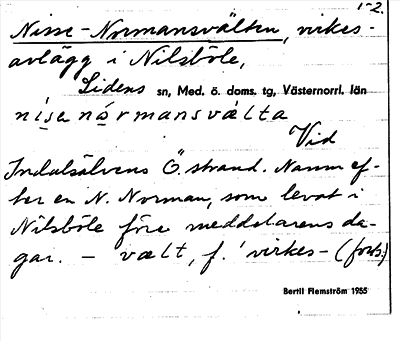 1-2.
Nisse-Normansvälten, virkes-
avlägg i Nilsböle,
Lidens sn, Med. ö. doms. tg, Västernorrl. län
nisa nórmansvælta
Vid
Indalsälvens Ö. strand. Namn ef-
ter en N. Norman, som levat i
Nilsböle före meddelarens da-
gar. - vælt, f. 'virkes- (forts.)
Bertil Flemström 1955